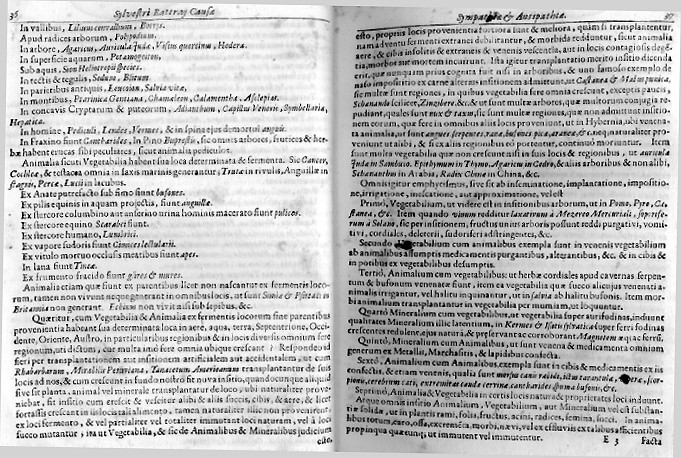 36 Sylvestri Rattray Causæ
In vallibus, Lilium convallium, Botrys.
Apud radices arborum, Polypodium.
In arbore, Agaricus, Auricula Judæ, Viscus quercinus, Hedera.
In superficie aquarum, Potamogeton.
Sub aquis, Sion species.
In tectis & tegulis, Sedum,
In parietibus antiquis, Leucoium, Salvia vitæ.
In montibus, Ptarmica Gentiana, Chamæleon, Calamentha, Asclepias.
In concavis Cryptarum & puteorum, Adianthum, Capillus Veneris,
Hepatica.
In homine, Pediculi, Lendes, Vermes, & in spina ejus demortui anguis.
In Fraxino sunt Cantharides, In Pino Buprestis, sic omnes arbores, frutices & her-
bæ habent erucas sibi peculiares, sicut animalia pediculos.
Animalia sicuti Vegetabilia habent sua loca determinata & fermenta. Sic Cancer,
Cochleæ, & testacea omnia in saxis marinis generantur; Truta in rivulis, Anguillæ in
stagnis, Percæ, Lucii in lacubus.
Ex Anate putrefacto sub fimo fiunt bufones.
Ex pilis equinis in aquam projectis, fiunt anguillæ.
Ex stercore columbino aut anserino urina hominis macerato fiunt pulices.
Ex stercore equino Scarabæi fiunt.
Ex stercore humano, Lumbrici.
Ex vapore sudoris fiunt Cimices lectularii.
Ex vitulo mortuo occlusis meatibus fiunt apes.
In lana fiunt Tineæ.
Ex frumento fracido fiunt glires & mures.
Animalia etiam quæ fiunt ex parentibus licet non nascantur ex fermentis loco-
rum, tamen non vivunt neque generantur in omnibus locis, ut sunt Simiæ & Psittaci in
Britannia non generant. Echium non vivit nisi sub sepibus, &c.
Quæritur, cum Vegetabilia & Animalia ex fermentis locorum sine parentibus
provenientia habeant sua determinata loca in aere, aqua, terra, Septentrione, Occi-
dente, Oriente, Austro, in particularibus regionibus & in locis diversis omnium fere
regionum, uti dictum, cur multa imo fere omnia ubique crescant? Respondeo id
fieri per transplantationem aut insitionem artificialem aut accidentalem, ut cum
Rhabarbarum, Mirabilis Peruviana, Tanacetum Americanum transplantantur de suis
locis ad nos, & cum crescunt in fundo nostro fit nova insitio, quandocunque aliquid
sive sit planta, animal vel minerale transplantatur de loco ubi naturaliter prove-
niebat, fit insitio cum crescit & vescitur aliis & aliis succis, cibis, & aere, & licet
fortassis crescant in is locis talia multo, tamen naturaliter illic non provenirent,
ex loci fermento, & vel partialiter vel totaliter immutant loci naturam, vel à loci
succo mutantur; ita ut Vegetabilia, & sic de Animalibus & Mineralibus judicium
esto,
Sympathiæ & Antipathiæ. 37
esto, propriis locis provenientia fortiora sunt & meliora, quàm si transplantentur,
nam adventu fermenti extranei debilitantur, & morbida redduntur, sicut animalia
aere, & cibis insolitis & extraneis & venenis vescentia, aut in locis contagiosis dege-
tia, morbo aut mortem incurrunt. Ista igitur transplantatio merito insitio dicenda
erit, quæ nunquam prius cognita fuit nisi in arboribus, & uno famoso exemplo de
naso impositio ex carne alterius insitionem admiserunt, ut Castanea & Malus punica,
sic multæ sunt regiones, in quibus vegetabilia fere omnia crescunt, exceptis paucis,
Schænanto scilicet, Zingibere, &c. & ut sunt multæ arbores, quæ mortuorum conjugia re-
pudiant, quales sunt nux & taxus, sic sunt multæ regiones, quæ non admittunt insitio-
nem eorum, quæ fere in omnibus aliis locis proveniunt, ut in Hybernia, ubi venena-
ta animalia, ut sunt angues serpentes, ranæ, bufones, picæ, araneæ, &c. neq; naturaliter pro-
veniunt ut alibi, & si ex aliis regionibus eo portentur, continuò moriuntur. Item
sunt multa vegetabilia quæ non crescunt nisi in suis locis & regionibus, ut auricula
Judæ in Sambuco, Epithymum in Thymo, Agaricus in Cedro, & aliis arboribus & non alibi,
Schænanthus in Arabia, Radix Chinæ in China, &c.
Omnis igitur emphyteusis, sive sit ab infeminatione, implantatione, impositio-
ne, irrigatione, inescatione, aut approximatione, vel est
Primò, Vegetabilium, ut videre est in insitionibus arborum, ut in Pomo, Pyro, Ca-
stanea, &c. Item quando vinum redditur laxativum à Mezereo Mercuriali, soporife-
rum à Solani, sic per insitionem, fructus unius arboris possunt reddi purgativi, vomi-
tivi, cordiales, deleterii, sudoriferi adstringentes, &c.
Secundò Vegetabilium cum animalibus exempla sunt in venenis vegetabilium
ab animalibus assumptis medicamenti purgantibus, alterantibus, &c. & in cibis &
in potibus ex vegetabilibus desumptis.
Tertiò, Animalium cum vegetabilibus: ut herbæ cordiales apud cavernas serpen-
tum & bufonum venenatæ fiunt, item ea vegetabilia quæ succo alicujus venenati a-
nimalis irrigantur, vel halitu inquinantur, ut in salvia ab halitu bufonis. Item mor-
bi animalium transplantantur in vegetabilia per mumiam, ut loquuntur.
Quartò Mineralium cum vegetabilibus, ut vegetabilia super aurifodinas, induunt
qualitates Mineralium illic latentium, in Kermes & super ferri fodinas
crescentes redolent ejus naturam, & per ferrum cæteræ roborant Magnetem aqua ferri.
Quintò, Mineralium cum Animalibus, ut sunt venena & medicamenta omnium
generum ex Metallis, Marchasitis, & lapidibus confecta.
Sextò, Animalium cum Animalibus, exempla sunt in cibis & medicamentis ex iis
confectis, & etiam venenis, qualia sunt morsus canis rabidi, ictus tarantulæ, scor-
pionis, cerebrum cati, extremitas caudæ cervinæ, cantharides, spuma bufonis, &c.
Septimò, Animalia & Vegetabilia in certis locis naturæ proprietates loci induunt.
Atque omnis insitio Vegetabilium, Animalium, aut Mineralium vel est substan-
tiæ solidæ, ut in plantis rami, folia, fructus, acini, radices, semina, succi. In anima-
libus totum, caro, ossa, excrementa, morbi, nævi, vel ex effluviis ex talibus assistentibus
propinqua quæcunq; ut immutent vel immutentur.
E 3 Facta